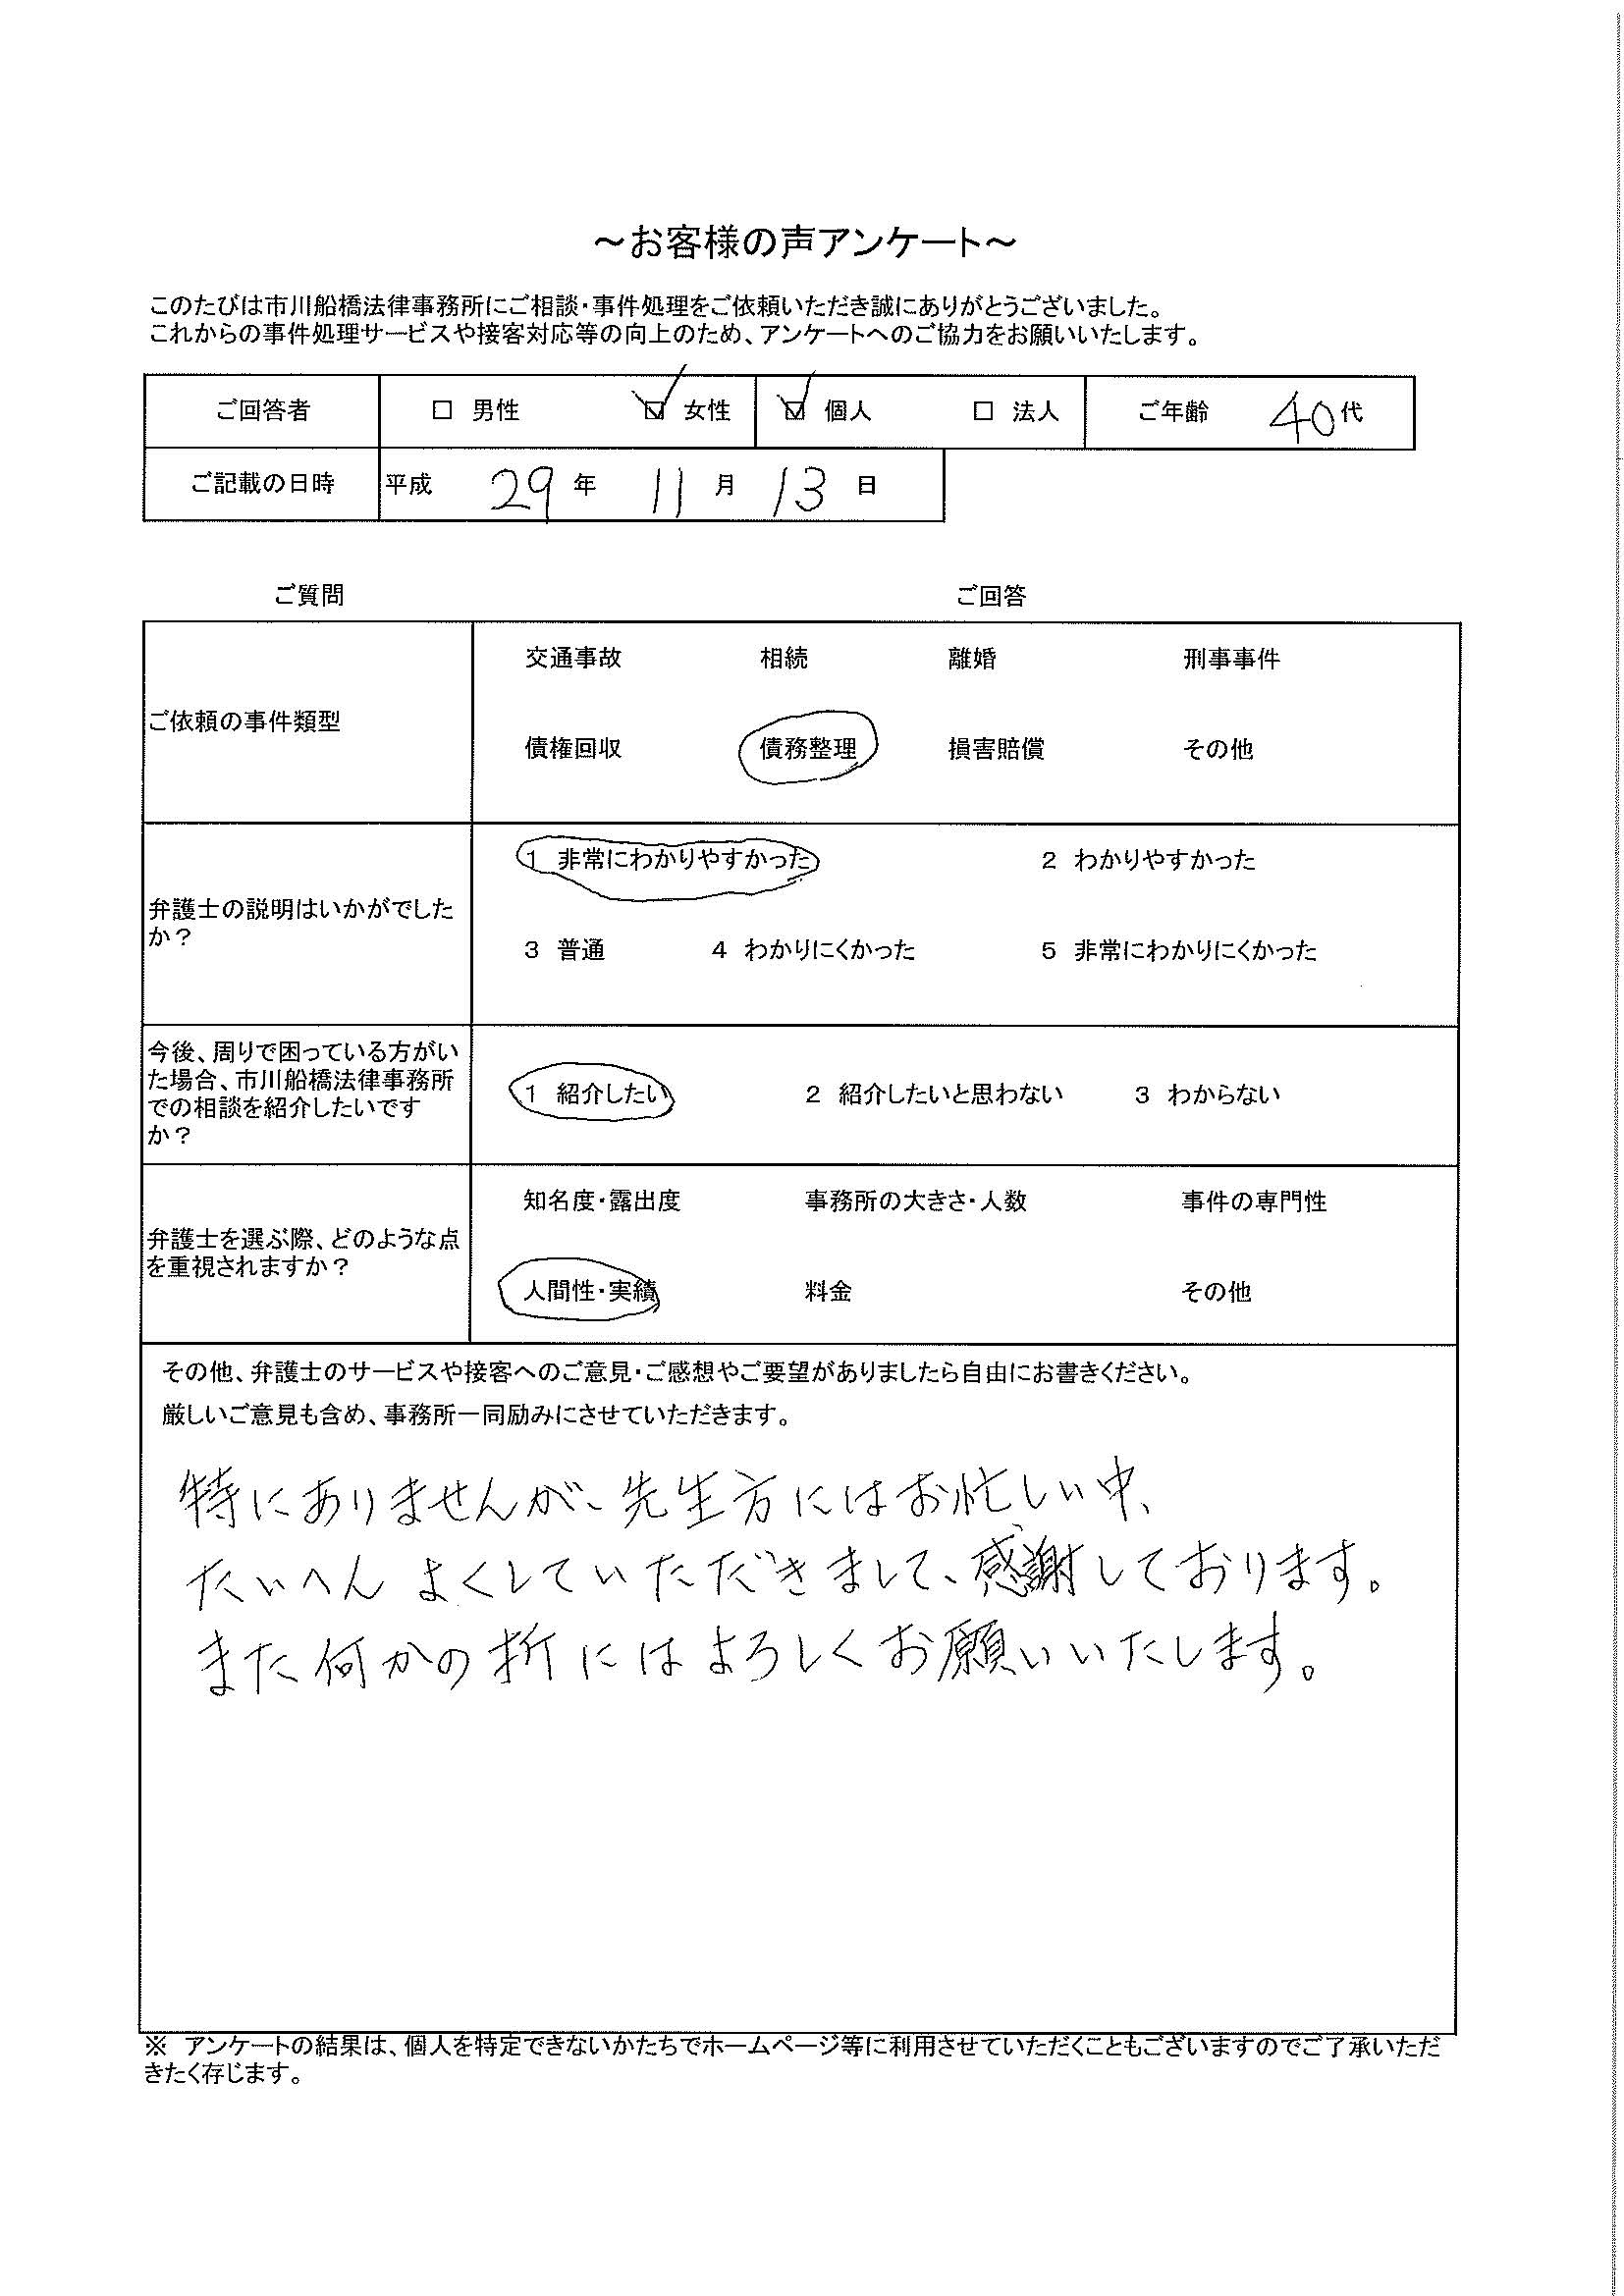 ～お客様の声アンケート～
このたびは市川船橋法律事務所にご相談・事件処理をご依頼いただき誠にありがとうございました。
これからの事件処理サービスや接客対応等の向上のため、アンケートへのご協力をお願いいたします。
ご回答者 □ 男性 ☑ 女性 ☑ 個人 □ 法人 ご年齢 40代
ご記載の日時 平成 29 年 11 月 13 日
ご質問 ご回答
交通事故 相続 離婚 刑事事件
ご依頼の事件類型
債権回収 債務整理 損害賠償 その他
1 非常にわかりやすかった 2 わかりやすかった
弁護士の説明はいかがでした
か？
3 普通 4 わかりにくかった 5 非常にわかりにくかった
今後、周りで困っている方がい
た場合、市川船橋法律事務所
での相談を紹介したいです
か？
1 紹介したい 2 紹介したいと思わない 3 わからない
知名度・露出度 事務所の大きさ・人数 事件の専門性
弁護士を選ぶ際、どのような点
を重視されますか？
人間性・実績 料金 その他
その他、弁護士のサービスや接客へのご意見・ご感想やご要望がありましたら自由にお書きください。
厳しいご意見も含め、事務所一同励みにさせていただきます。
特にありませんが、先生方にはお忙しい中、
たいへんよくしていただきまして、感謝しております。
また何かの折にはよろしくお願いいたします。
※ アンケートの結果は、個人を特定できないかたちでホームページ等に利用させていただくこともございますのでご了承いただ
きたく存じます。